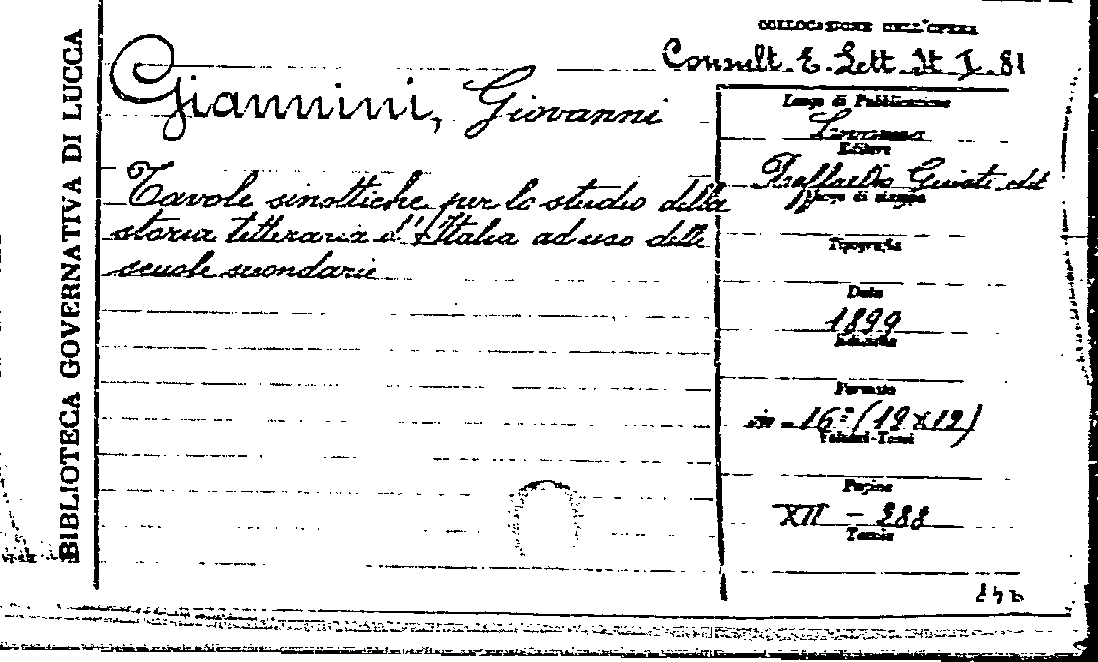 BIBLIOTECA GOVERNATIVA DI LUCCA
COLLOCAZIONE DELL'OPERA
Consult. E. Lett. It. I. 81
Giannini, Giovanni
Tavole sinottiche per lo studio della
storia letteraria d'Italia ad uso delle
scuole secondarie
Luogo di Pubblicazione
Livorno
Editore
Raffaello Giusti edit
Luogo di stampa
Tipografia
Data
1899
Formato
in-16° (19x12)
Volumi-Tomi
Pagine
XII - 288
Tavole